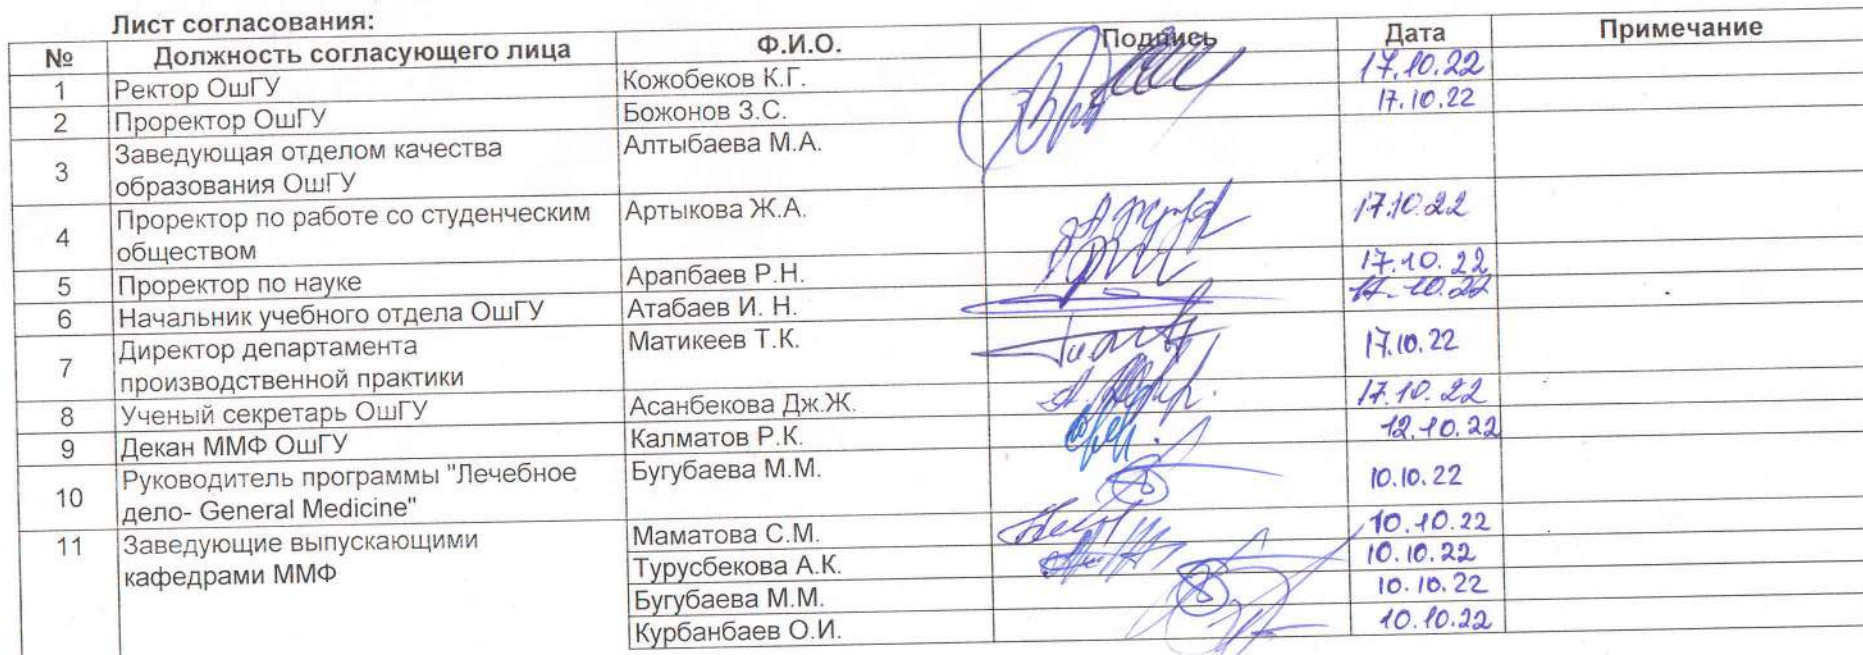 Лист согласования:
№ Должность согласующего лица Ф.И.О. Подпись Дата Примечание
1 Ректор ОшГУ Кожобеков К.Г. 17.10.22
2 Проректор ОшГУ Божонов З.С. 17.10.22
3 Заведующая отделом качества образования ОшГУ Алтыбаева М.А.
4 Проректор по работе со студенческим обществом Артыкова Ж.А. 17.10.22
5 Проректор по науке Арапбаев Р.Н. 17.10.22
6 Начальник учебного отдела ОшГУ Атабаев И. Н. 17.10.22
7 Директор департамента производственной практики Матикеев Т.К. 17.10.22
8 Ученый секретарь ОшГУ Асанбекова Дж.Ж. 17.10.22
9 Декан ММФ ОшГУ Калматов Р.К. 12.10.22
10 Руководитель программы "Лечебное дело- General Medicine" Бугубаева М.М. 10.10.22
11 Заведующие выпускающими кафедрами ММФ Маматова С.М. 10.10.22
Турусбекова А.К. 10.10.22
Бугубаева М.М. 10.10.22
Курбанбаев О.И. 10.10.22